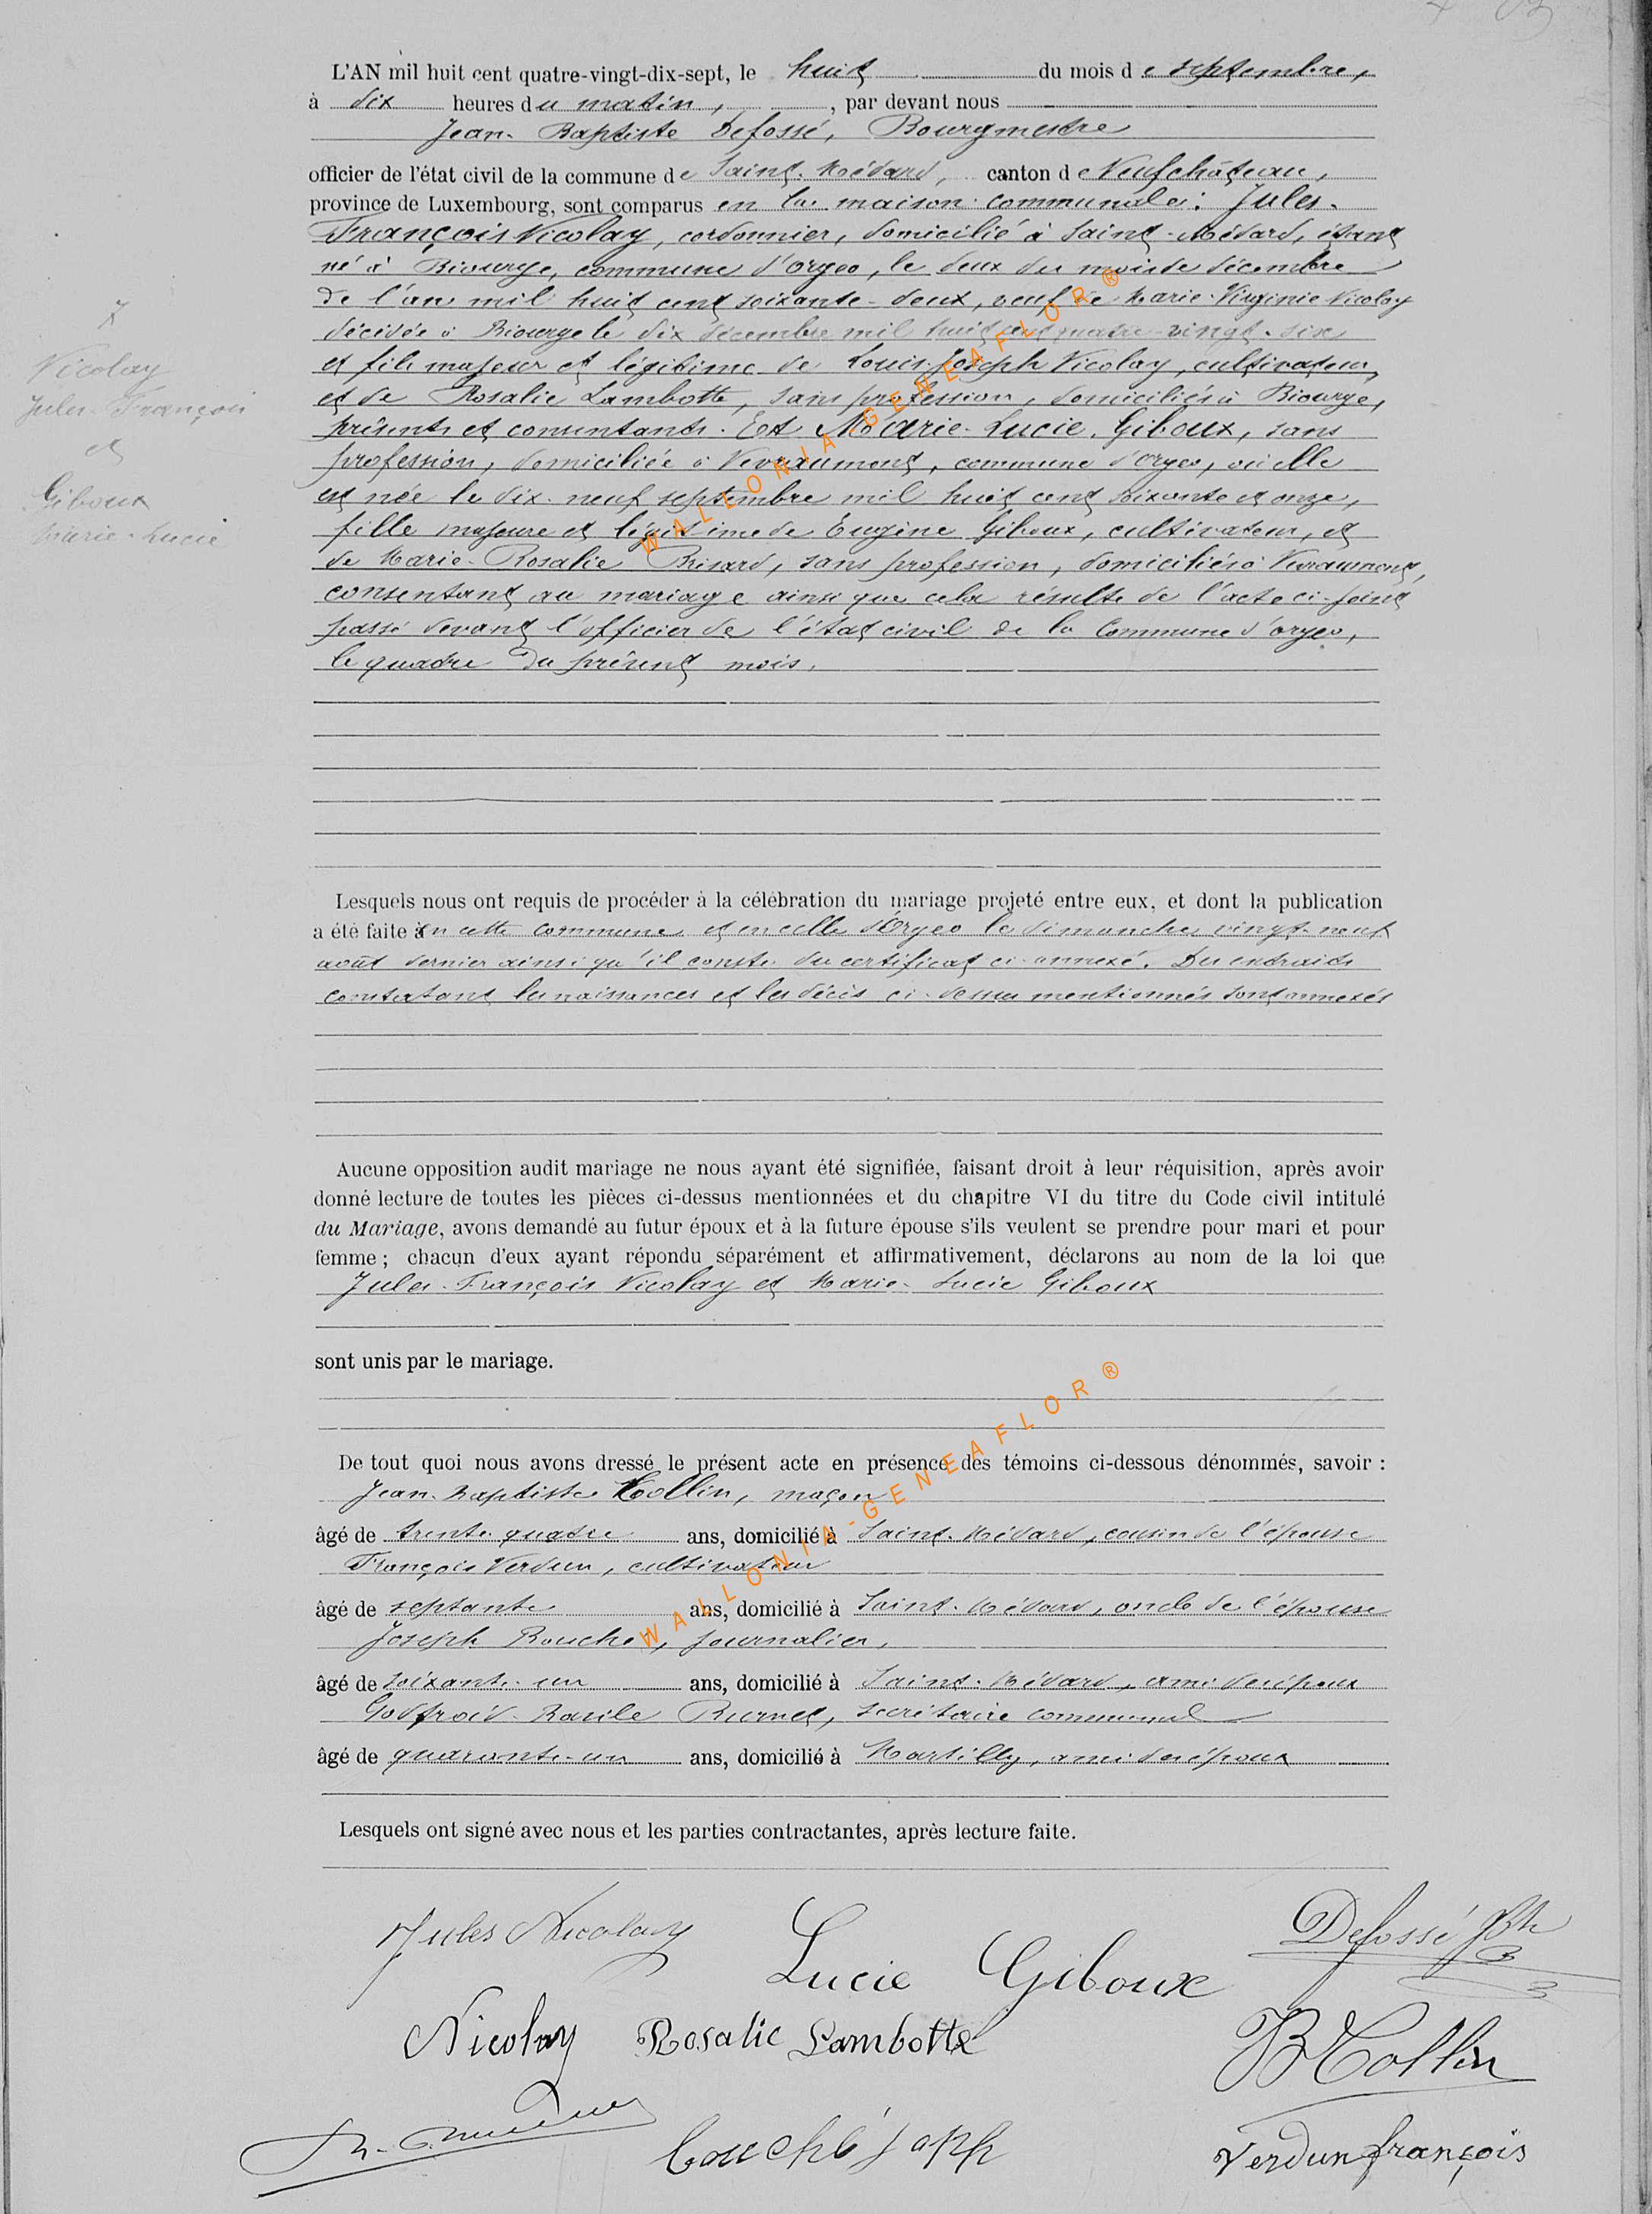 L'AN mil huit cent quatre-vingt-dix-sept, le huit du mois de septembre,
à dix heures du matin, , par devant nous
Jean-Baptiste Defossé, Bourgmestre
officier de l'état civil de la commune de Saint-Médard, canton de Neufchâteau,
province de Luxembourg, sont comparus en la maison communale: Jules-
François Nicolay, cordonnier, domicilié à Saint-Médard, étant
né à Biourge, commune d'Orgeo, le deux du mois de décembre
de l'an mil huit cent soixante-deux, veuf de Marie-Virginie Nicolay
décédée à Biourge le dix décembre mil huit cent quatre-vingt-six
et fils majeur et légitime de Louis-Joseph Nicolay, cultivateur,
et de Rosalie Lambotte, sans profession, domiciliés à Biourge,
présents et consentants. Et Marie-Lucie Giboux, sans
profession, domiciliée à Nevraumont, commune d'Orgeo, où elle
est née le dix-neuf septembre mil huit cent soixante et onze,
fille majeure et légitime de Eugène Giboux, cultivateur, et
de Marie-Rosalie Brisard, sans profession, domiciliés à Nevraumont,
consentant au mariage ainsi que cela résulte de l'acte ci-joint
passé devant l'officier de l'état civil de la Commune d'Orgeo,
le quatre du présent mois.
X
Nicolay
Jules-François
et
Giboux
Marie-Lucie
Lesquels nous ont requis de procéder à la célébration du mariage projeté entre eux, et dont la publication
a été faite à en cette commune et en celle d'Orgeo le dimanche vingt-neuf
août dernier ainsi qu'il conste du certificat ci-annexé. Des extraits
constatant les naissances et les décès ci-dessus mentionnés sont annexés
Aucune opposition audit mariage ne nous ayant été signifiée, faisant droit à leur réquisition, après avoir
donné lecture de toutes les pièces ci-dessus mentionnées et du chapitre VI du titre du Code civil intitulé
du Mariage, avons demandé au futur époux et à la future épouse s'ils veulent se prendre pour mari et pour
femme ; chacun d'eux ayant répondu séparément et affirmativement, déclarons au nom de la loi que
Jules-François Nicolay et Marie-Lucie Giboux
sont unis par le mariage.
De tout quoi nous avons dressé le présent acte en présence des témoins ci-dessous dénommés, savoir :
Jean-Baptiste Collin, maçon
âgé de trente-quatre ans, domicilié à Saint-Médard, cousin de l'épouse
François Verdun, cultivateur
âgé de septante ans, domicilié à Saint-Médard, oncle de l'épouse
Joseph Bouché, journalier,
âgé de soixante-un ans, domicilié à Saint-Médard, ami des époux
Godfroid-Basile , secrétaire communal
âgé de quarante-un ans, domicilié à Martilly, ami des époux
Lesquels ont signé avec nous et les parties contractantes, après lecture faite.
Jules Nicolay
Lucie Giboux
Defossé JBte
Nicolay Rosalie Lambotte
JB Collin
Bouché Joseph
Verdun françois
WALLONIA-GENEAFLOR ®
WALLONIA-GENEAFLOR ®